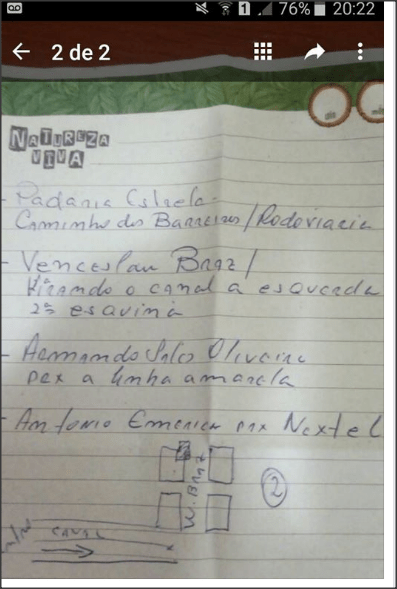 76% 20:22
2 de 2
NATUREZA
VIVA
- Padaria Estrela -
Caminho dos Barreiros / Rodoviaria
- Venceslau Braz /
Virando o canal a esquerda
2ª esquina
- Armando Sales Oliveira
pex a linha amarela
- Antonio Emerich pax Nextel
W. Braz
2
CANAL